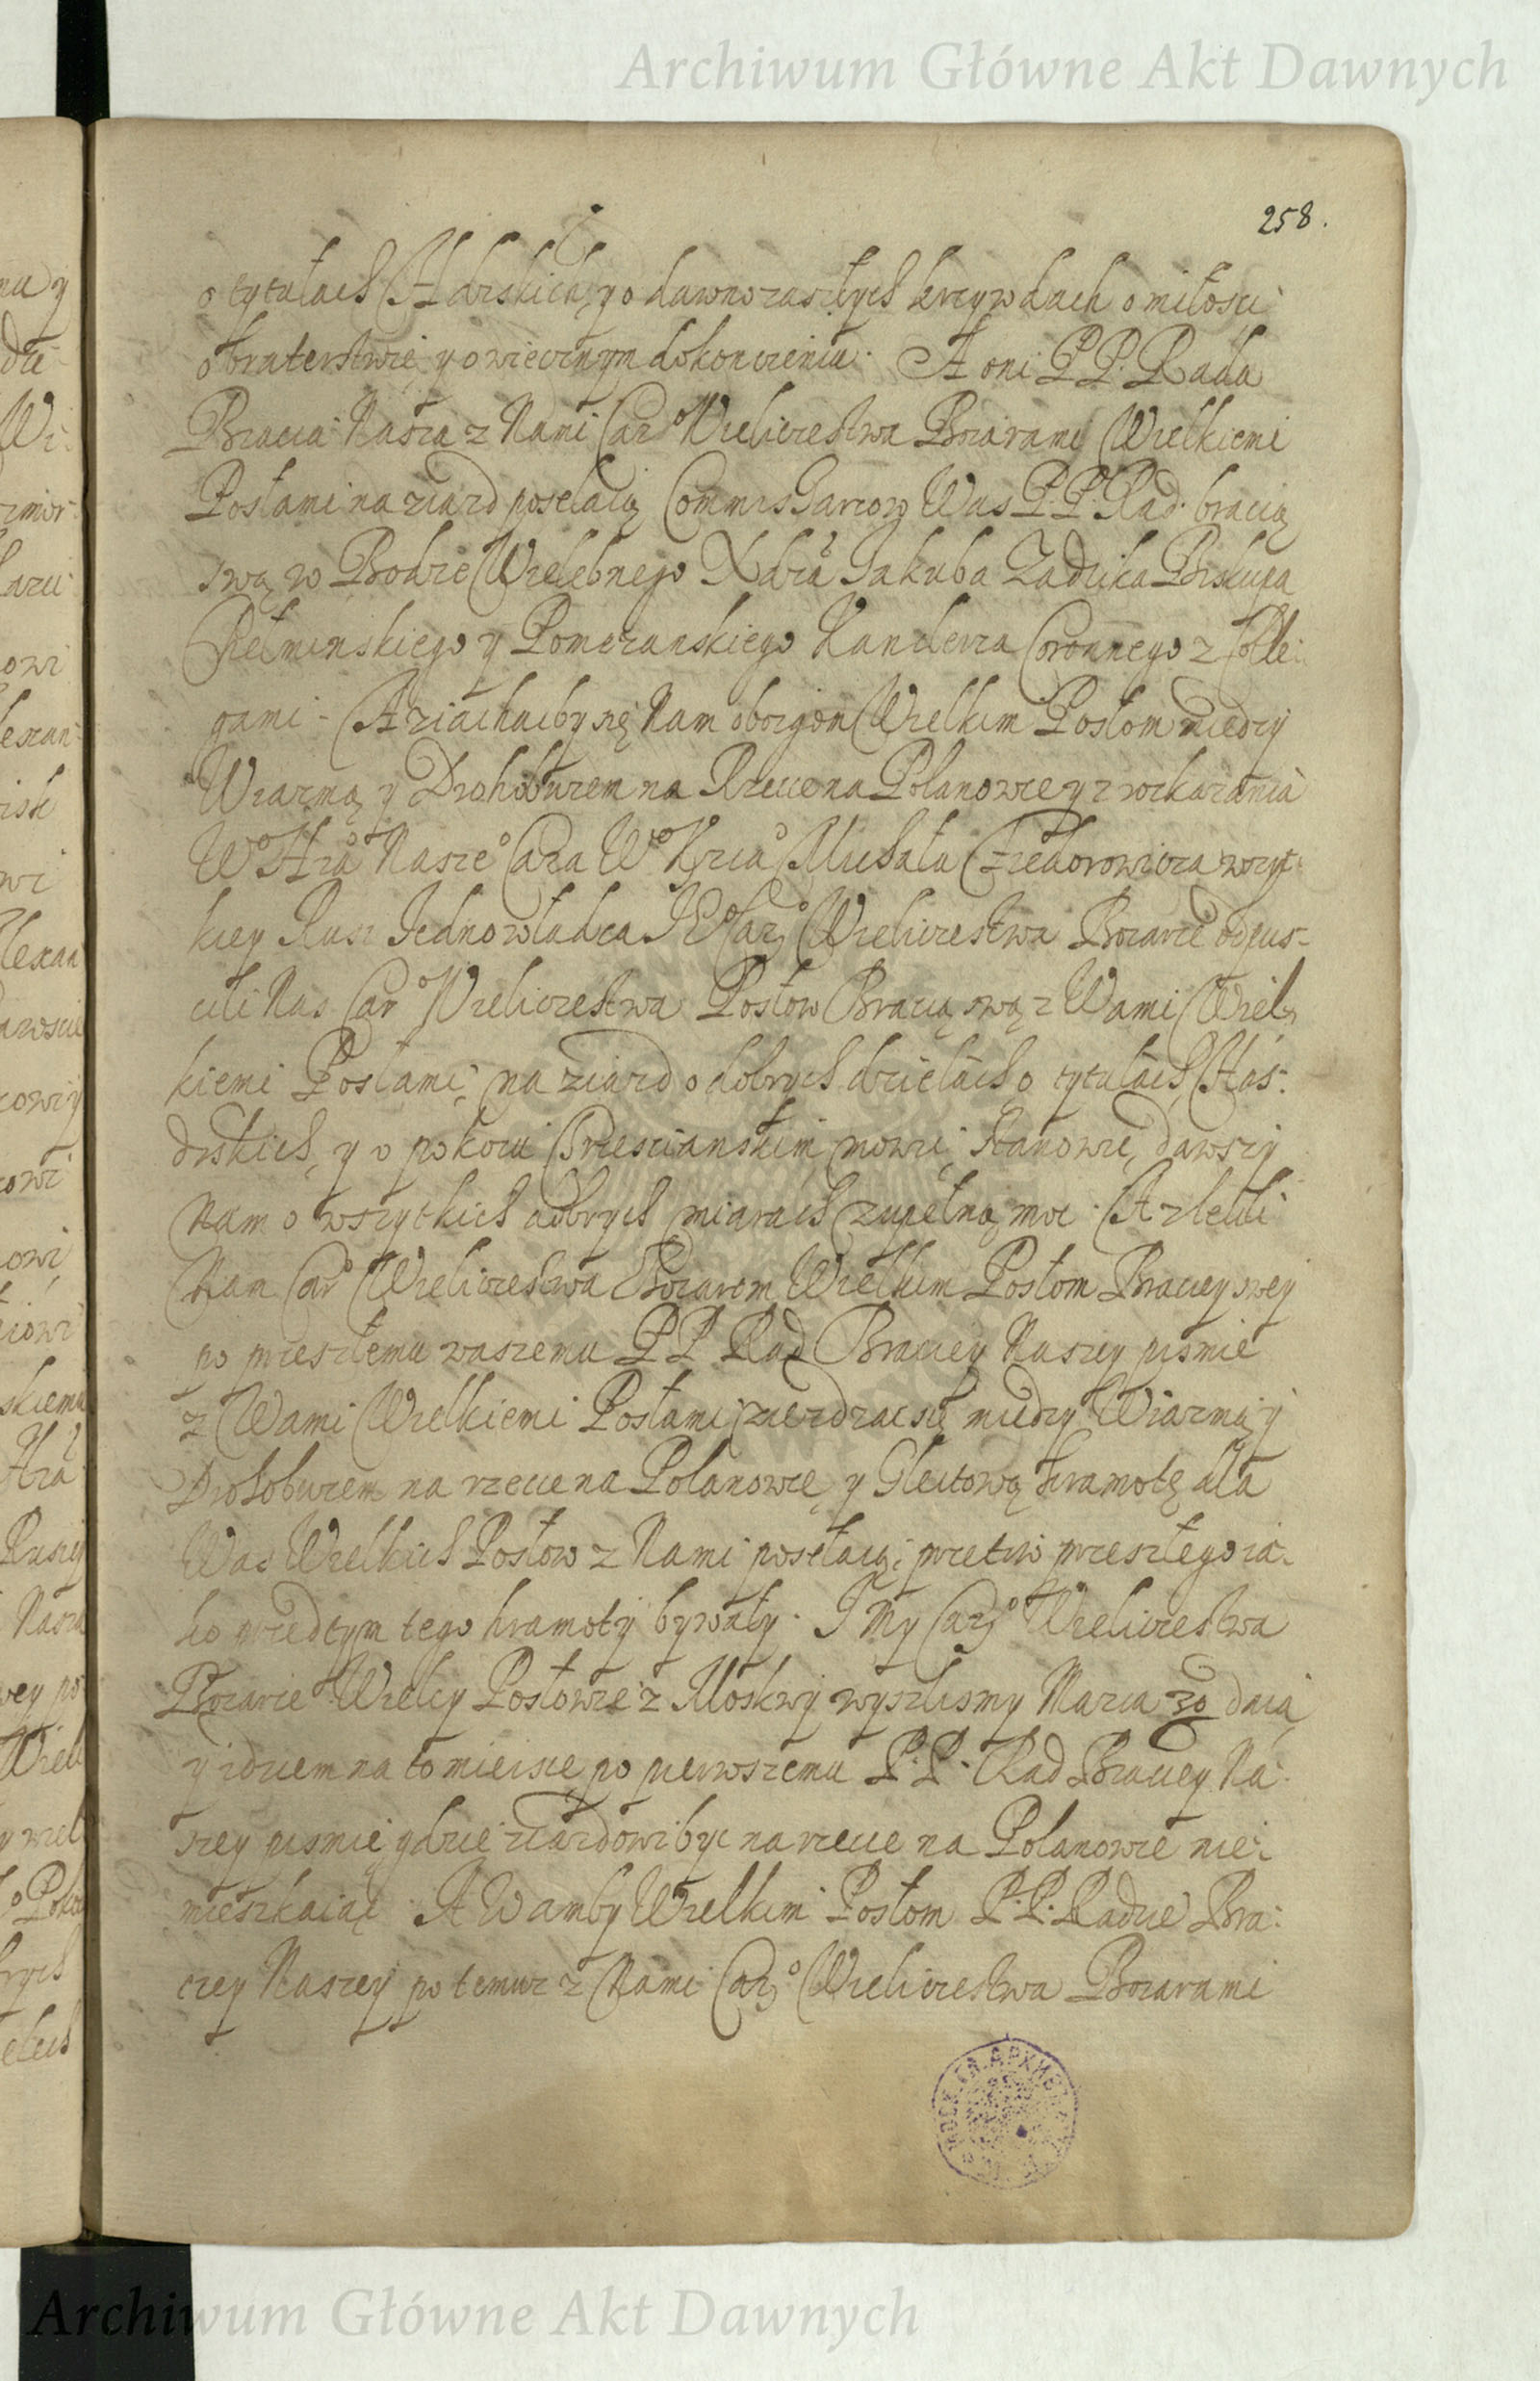 Archiwum Główne Akt Dawnych
258.
o tytułach Hdrskich, y o dawnozaszłych krzywdach o miłosci
o braterstwie y o wiecznym dokonczeniu. A oni P.P. Rada
Bracia Nasza z Nami Car° Wieliczestwa Boiarami Wielkiemi
Posłami na ziazd poselaią Commissarzow Was P.P. Rad bracią
swą w Bodze Wielebnego Xdza Jakuba Zadzika Biskupa
Chełminskiego y Pomezanskiego Kanclerza Coronnego z Colle-
gami. A ziachacby się Nam oboyom Wielkim Posłom miedzy
Wiazmą y Drohobuzem na Rzece na Polanowce y z wskazania
W° Hra Nasze° Cara W° Kzia Michała Fiedorowicza wszyt-
kiey Rusi Jednowładca JE° Carz° Wieliczestwa Boiarie odpus-
cili Nas Car° Wieliczestwa Posłow Bracią swą z Wami Wiel-
kiemi Posłami, na ziazd o dobrych dziełach o tytułach Hos-
drskich, y o pokoiu Chrescianskim mowić, stanowić, dawszy
Nam o wszytkich dobrych miarach zupełną moc. A zlecili
Nam Car° Wieliczestwa Boiarom Wielkim Posłom Braciey swey
po przeszłemu waszemu P.P. Rad Braciey Naszey pismie
z Wami Wielkiemi Posłami zierdzacsię miedzy Wiazmą y
Drohobuzem na rzece na Polanowce, y Gleitową hramotę dla
Was Wielkich Posłow z Nami posełaią, przetiw przeszłego ia-
ko przedtym tego hramoty bywały. I My Carz° Wieliczestwa
Boiarie Wielcy Posłowie z Moskwy wyszlismy Marca 30 dnia
y idziem na to mieisce po pierwszemu P.P. Rad Braciey Na-
szey pismie gdzie ziazdowi być na rzece na Polanowce nie-
mieszkaiąc. A Wamby Wielkim Posłom P.P. Radzie Bra-
ciey Naszey po temuz z Nami Carz° Wieliczestwa Boiarami
Archiwum Główne Akt Dawnych